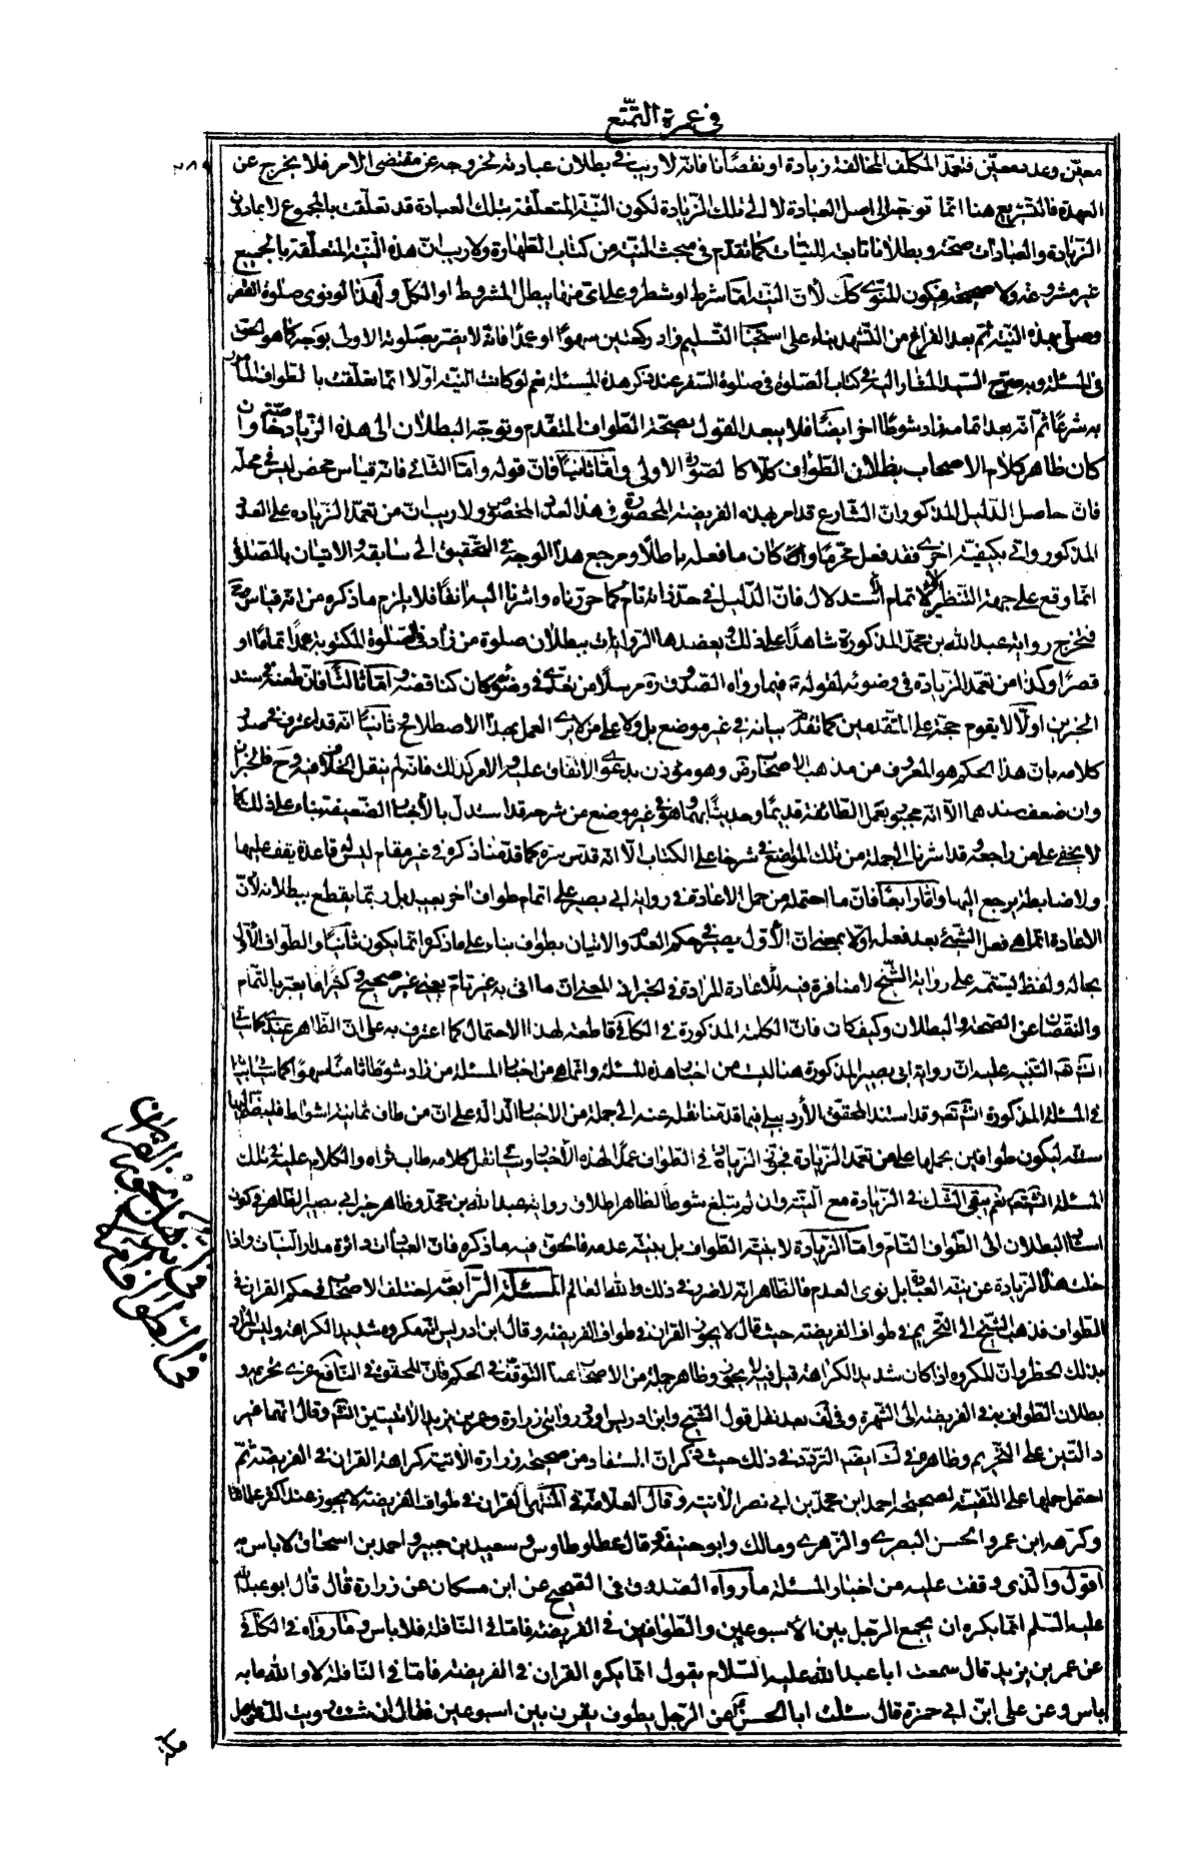 في عمرة التمتّع
معيّن وعدد معيّن فتعمّد المكلّف المخالفة زيادة او نقصانا فانه لا ريب في بطلان عبادته لخروجه عن مقتضى الامر فلا يخرج عن
العهدة فالتشريع هنا انما توجّه الى اصل العبادة لا الى تلك الزيادة لكون النيّة المتعلّقة بتلك العبادة قد تعلّقت بالمجموع لا بمادون
الزيادة والعبادات صحّة وبطلانا تابعة للنيّات كما تقدّم في مبحث النيّة من كتاب الطهارة ولا ريب ان هذه النيّة المتعلّقة بالجميع
غير مشروعة ولا صحيحة فيكون المنوي كك لان النيّة امّا شرط او شطر وعلى اي منهما يبطل المشروط او الكل وهذا لو نوى صلوة القصر
وصلّى بهذه النيّة ثم بعد الفراغ من التشهد بناء على استحباب التسليم زاد ركعتين سهوًا او عمدًا فانه لا يضرّ بصلوته الاولى بوجه كما هو الحق
في المسئلة وبه صرّح السيّد المشار اليه في كتاب الصلوة في صلوة السفر عند ذكر هذه المسئلة نعم لو كانت النيّة اوّلا انما تعلّقت بالطواف المامور
به شرعًا ثم انّه بعد اتمامه زاد شوطًا اخر ايضًا فلا يبعد القول بصحّة الطواف المتقدم وتوجّه البطلان الى هذه الزيادة خاصّة وان
كان ظاهر كلام الاصحاب بطلان الطواف كلا كالصورة الاولى وامّا ثانيًا فان قوله وامّا الثاني فانه قياس محض ليس في محله
فان حاصل الدليل المذكور ان الشارع قد امر بهذه الفريضة المحصورة في هذا العدد المخصوص ولا ريب ان من تعمّد الزيادة على العدد
المذكور واتى بكيفيّة اخرى فقد فعل محرّمًا وان كان ما فعله باطلًا ومرجع هذا الوجه في التحقيق الى سابقه والاتيان بالصلوة
انما وقع على جهة التنظير لا تمام الاستدلال فان الدليل في حدّ ذاته تام كما حررناه واشرنا اليه انفًا فلا يلزم ما ذكره من انه قياس
فتخرج رواية عبد الله بن محمد المذكورة شاهدًا على ذلك ويعضدها الروايات ببطلان صلوة من زاد في الصلوة المكتوبة عمدًا تمامًا او
قصرًا وكذا من تعمّد الزيادة في وضوئه لقوله ع فيما رواه الصدوق مرسلًا من تعدّى في وضوئه كان كناقضه وامّا ثالثًا فان طعنه في سند
الخبرين اولًا لا يقوم حجة على المتقدمين كما تقدّم بيانه في غير موضع بل ولا على من لا يرى العمل بهذا الاصطلاح ثانيًا انه قد اعترف في صدر
كلامه بان هذا الحكم هو المعروف من مذهب الاصحاب رض وهو مؤذن بدعوى الاتفاق عليه والامر كذلك فانه لم ينقل الخلاف فيه وح فالخبران
وان ضعف سندهما الا انه مجبور بعمل الطائفة قديمًا وحديثًا بهما وهو في غير موضع من شرحه قد استدل بالاخبار الضعيفة بناء على ذلك كما
لا يخفى على من راجعه وقد اشرنا الى جملة من تلك المواضع في شرحنا على الكتاب الا انه قدس سره كما قدمنا ذكره في غير مقام ليس له قاعدة يقف عليها
ولا ضابطة يرجع اليها وامّا رابعًا فان ما احتمله من حمل الاعادة في رواية ابي بصير على اتمام طواف اخر بعيد بل ربما يقطع ببطلانه لان
الاعادة انما هي فعل الشيء بعد فعله اولًا بمعنى ان الاول يصير في حكم العدم والاتيان بطواف بناء على ما ذكروا انما يكون ثانيًا والطواف الاول
بحاله ولفظ ليستتمه على رواية الشيخ لا منافرة فيه للاعادة المرادة في الخبر اذ المعنى ان ما اتى به غير تام يعني غير صحيح وكثيرا ما يعبّر بالتمام
والنقصان عن الصحة والبطلان وكيف كان فان الكلمة المذكورة في الكافي قاطعة لهذا الاحتمال كما اعترف به على ان الظاهر عندي كما سيأتي
انش تعم التنبيه عليه ان رواية ابي بصير المذكورة هنا ليست من اخبار هذه المسئلة وانما هي من اخبار المسئلة من زاد شوطًا ثامنًا سهوًا كما سيأتي بيانها
في المسئلة المذكورة انش تعم وقد استند المحقق الاردبيلي فيما قدمنا نقله عنه الى جملة من الاخبار الدالة على ان من طاف ثمانية اشواط فليضف اليها
ستّة ليكون طوافين بحملها على من تعمّد الزيادة فجوّز الزيادة في الطواف عملًا بهذه الاخبار وسيأتي نقل كلامه طاب ثراه والكلام عليه في تلك
المسئلة انش تعم نعم يبقى الشك في الزيادة مع النيّة وان لم يتبلغ شوطًا لظاهر اطلاق رواية عبد الله بن محمد وظاهر خبر ابي بصير الظاهر في كون
اسناد البطلان الى الطواف التام وامّا الزيادة لا بنيّة الطواف بل بنيّة عدمه فالحق فيه ما ذكره فان العبادات دائرة مدار النيّات واذا
خلت هذه الزيادة عن نيّة العبادة بل نوى العدم فالظاهر انه لا ضرر في ذلك والله العالم المسئلة الرابعة اختلف الاصحاب في حكم القران في
الطواف فذهب الشيخ الى التحريم في طواف الفريضة حيث قال لا يجوز القران في طواف الفريضة وقال ابن ادريس انه مكروه شديد الكراهة وليس المراد
بذلك الحظر وان المكروه اذا كان شديد الكراهة قيل فيه لا يجوز وظاهر جملة من الاصحاب ايضا التوقف في الحكم فان المحقق في النافع عزى تحريمه و
بطلان الطواف به في الفريضة الى الشهرة وفي لف بعد نقل قول الشيخ وابن ادريس اورد روايتي زرارة وعمر بن يزيد الاتيتين انش وقال انهما غير
دالتين على التحريم وظاهره في ك ايضا التردّد في ذلك حيث ذكر ان المستفاد من صحيحة زرارة الاتية كراهة القران في الفريضة ثم
احتمل حملها على التقيّة لصحيحة احمد ابن محمد بن ابي نصر الاتية وقال العلامة في المنتهى القران في طواف الفريضة لا يجوز عند اكثر علمائنا
وكرهه ابن عمر والحسن البصري والزهري ومالك وابو حنيفة وقال عطا وطاوس وسعيد بن جبير واحمد بن اسحاق لا باس به
اقول والذي وقفت عليه من اخبار المسئلة ما رواه الصدوق في الصحيح عن ابن مسكان عن زرارة قال قال ابو عبد الله
عليه السلم انما يكره ان يجمع الرجل بين الاسبوعين والطوافين في الفريضة فامّا في النافلة فلا باس وما رواه في الكافي
عن عمر بن يزيد قال سمعت ابا عبد الله عليه السلام يقول انما يكره القران في الفريضة فامّا في النافلة لا والله ما به
باس وعن علي ابن ابي حمزة قال سئلت ابا الحسن ع عن الرجل يطوف يقرن بين اسبوعين فقال ان شئت رويت لك عن اهل
في انه هل يجوز القران
في الطواف ام لا